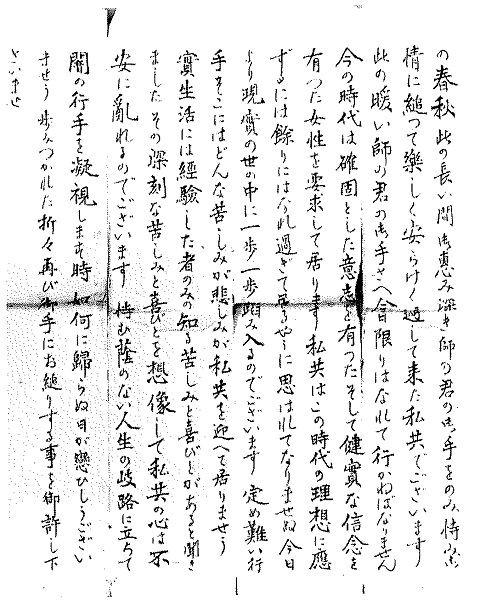 の春秋此の長い間御恵み深き師の君の御手をのみ恃み
情に縋つて樂しく安らけく過して来た私共でございます
此の暖い師の君の御手さへ今日限りはなれて行かねばなりません
今の時代は確固とした意志を有つたそして健實な信念を
有つた女性を要求して居ります私共はこの時代の理想に應
ずるには餘りにはなれ過ぎて居るやうに思はれてなりませぬ今日
より現實の世の中に一歩一歩踏み入るのでございます 定め難い行
手そこにはどんな苦しみが悲しみが私共を迎へて居りませう
實生活には經驗した者のみの知る苦しみと喜びとがあると聞き
ましたその深刻な苦しみと喜びとを想像して私共の心は不
安に亂れるのでございます 恃む蔭のない人生の岐路に立ちて
闇の行手を凝視します時如何に歸らぬ日が戀ひしうござい
ませう 歩みつかれた折々再び御手にお縋りする事を御許し下
さいませ